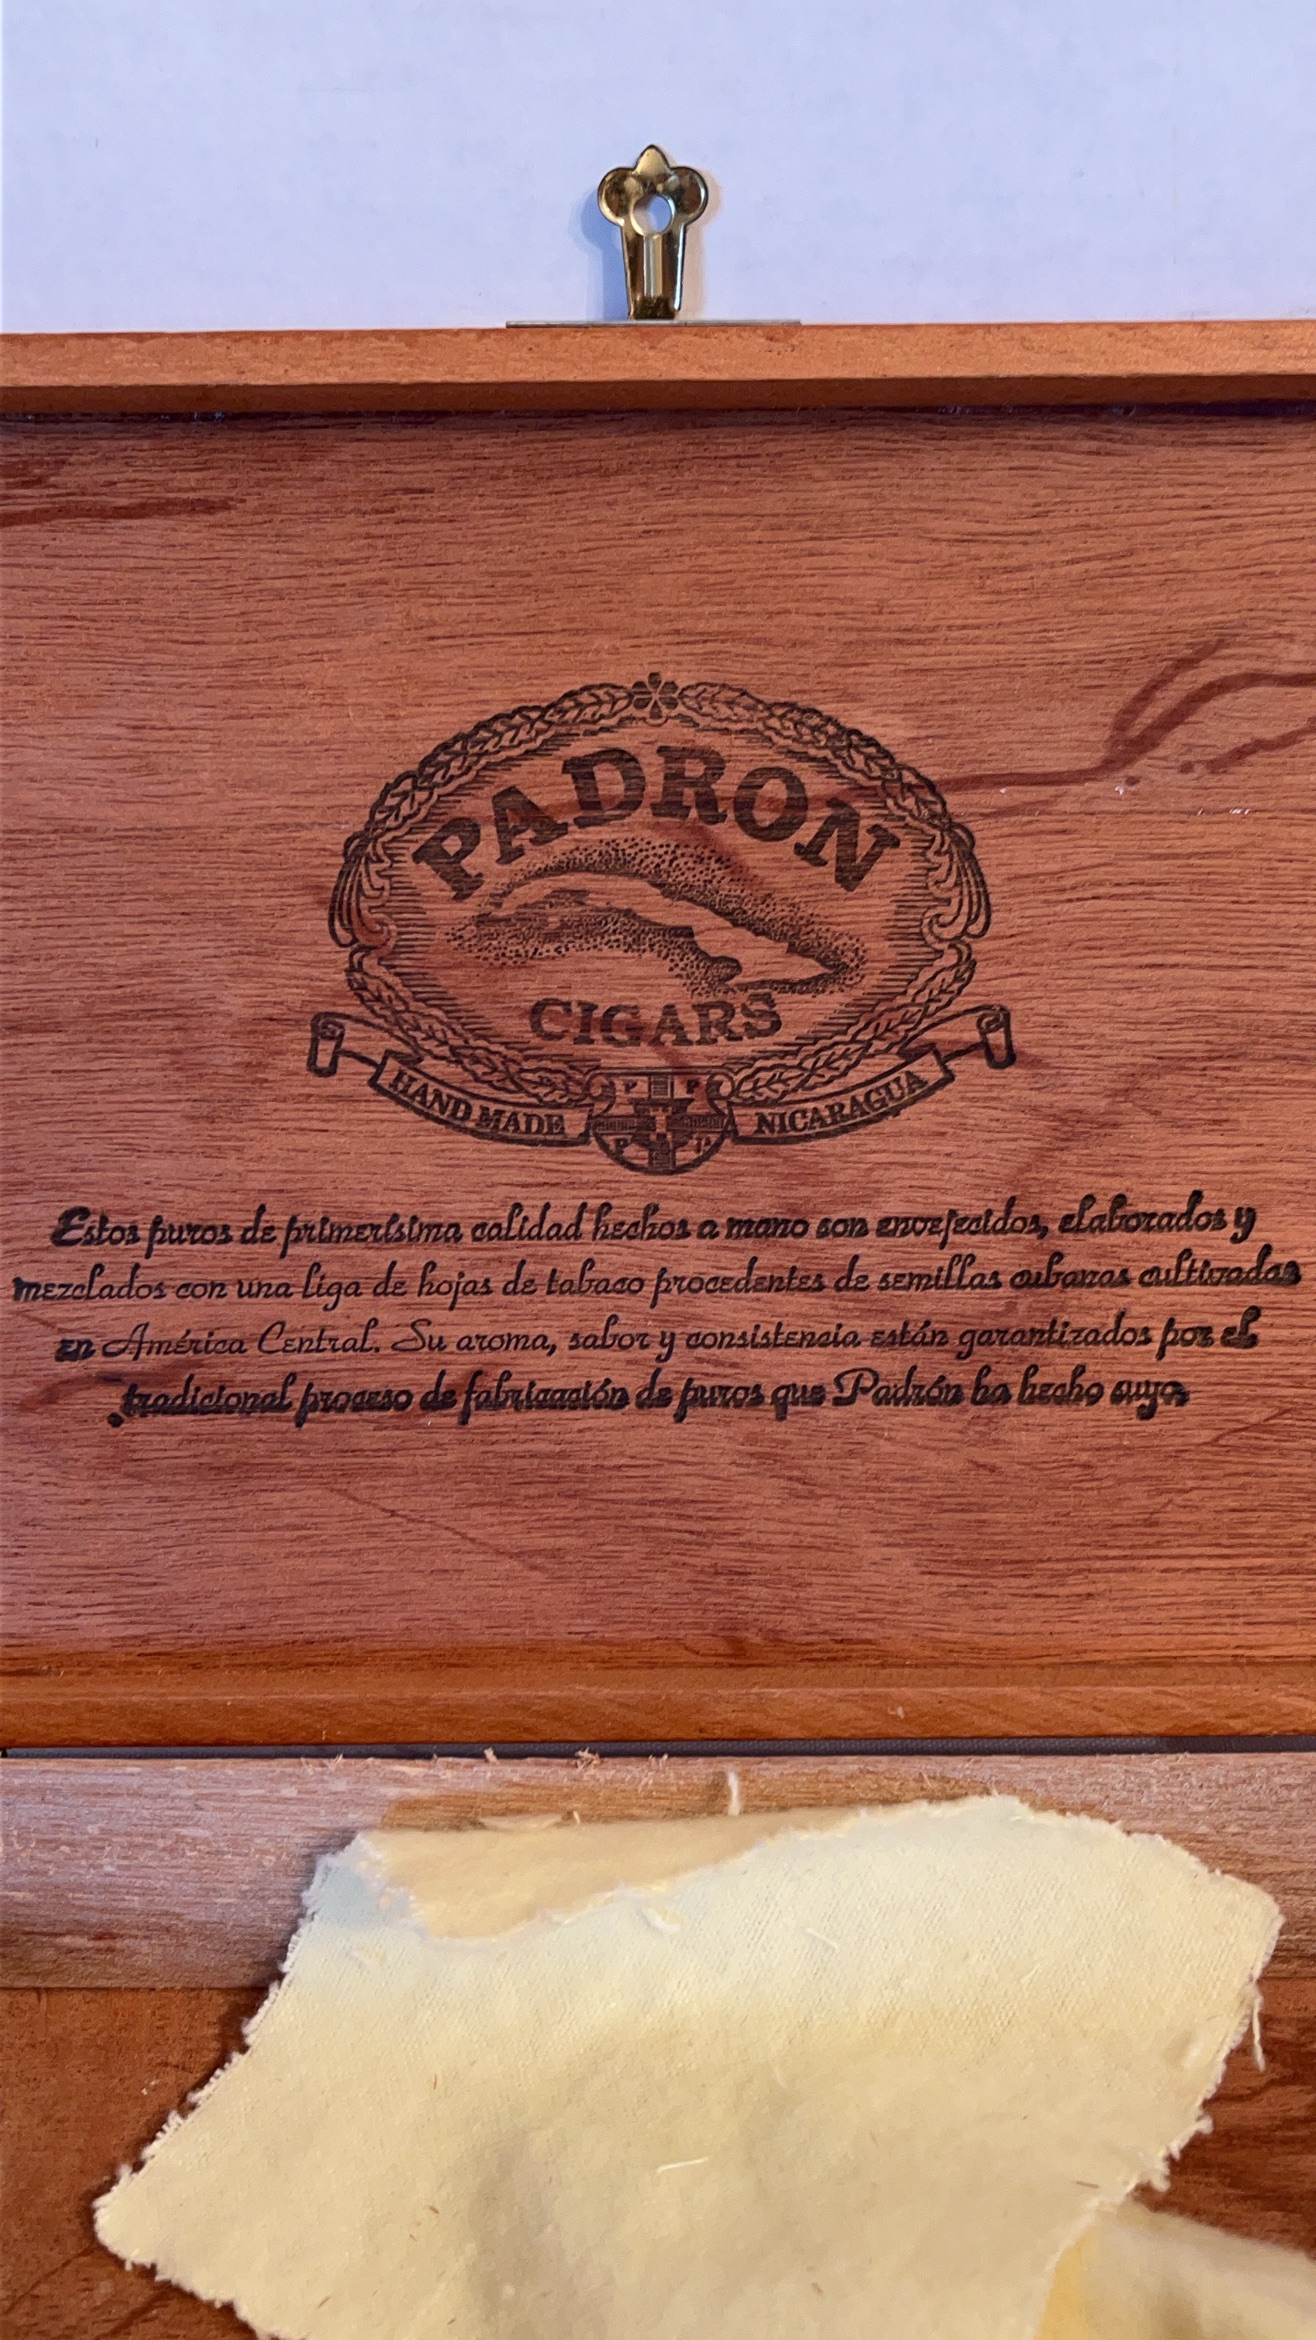 PADRON
CIGARS
HAND MADE
NICARAGUA
P P
P
Estos puros de primerísima calidad hechos a mano son envejecidos, elaborados y
mezclados con una liga de hojas de tabaco procedentes de semillas cubanas cultivadas
en América Central. Su aroma, sabor y consistencia están garantizados por el
tradicional proceso de fabricación de puros que Padrón ha hecho suyo.